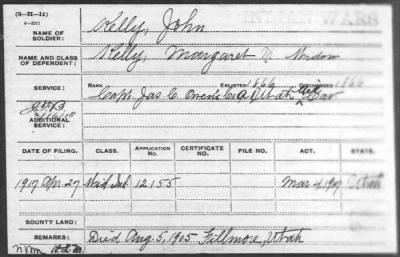 (3-H-11)
INDIAN WARS
NAME OF SOLDIER: Kelly, John
NAME AND CLASS OF DEPENDENT: Kelly, Margaret M. Widow
SERVICE: RANK ENLISTED 1866 DISCHARGED 1866
Capt. Jas. C. Owen's Co. A, Utah Mil Cav
ADDITIONAL SERVICE:
DATE OF FILING. CLASS. APPLICATION NO. CERTIFICATE NO. FILE NO. ACT. STATE.
1917 Apr. 27 Wid. Ind. 12155 Mar 4, 1917 Utah
BOUNTY LAND:
REMARKS: Died Aug. 5, 1905 Fillmore, Utah